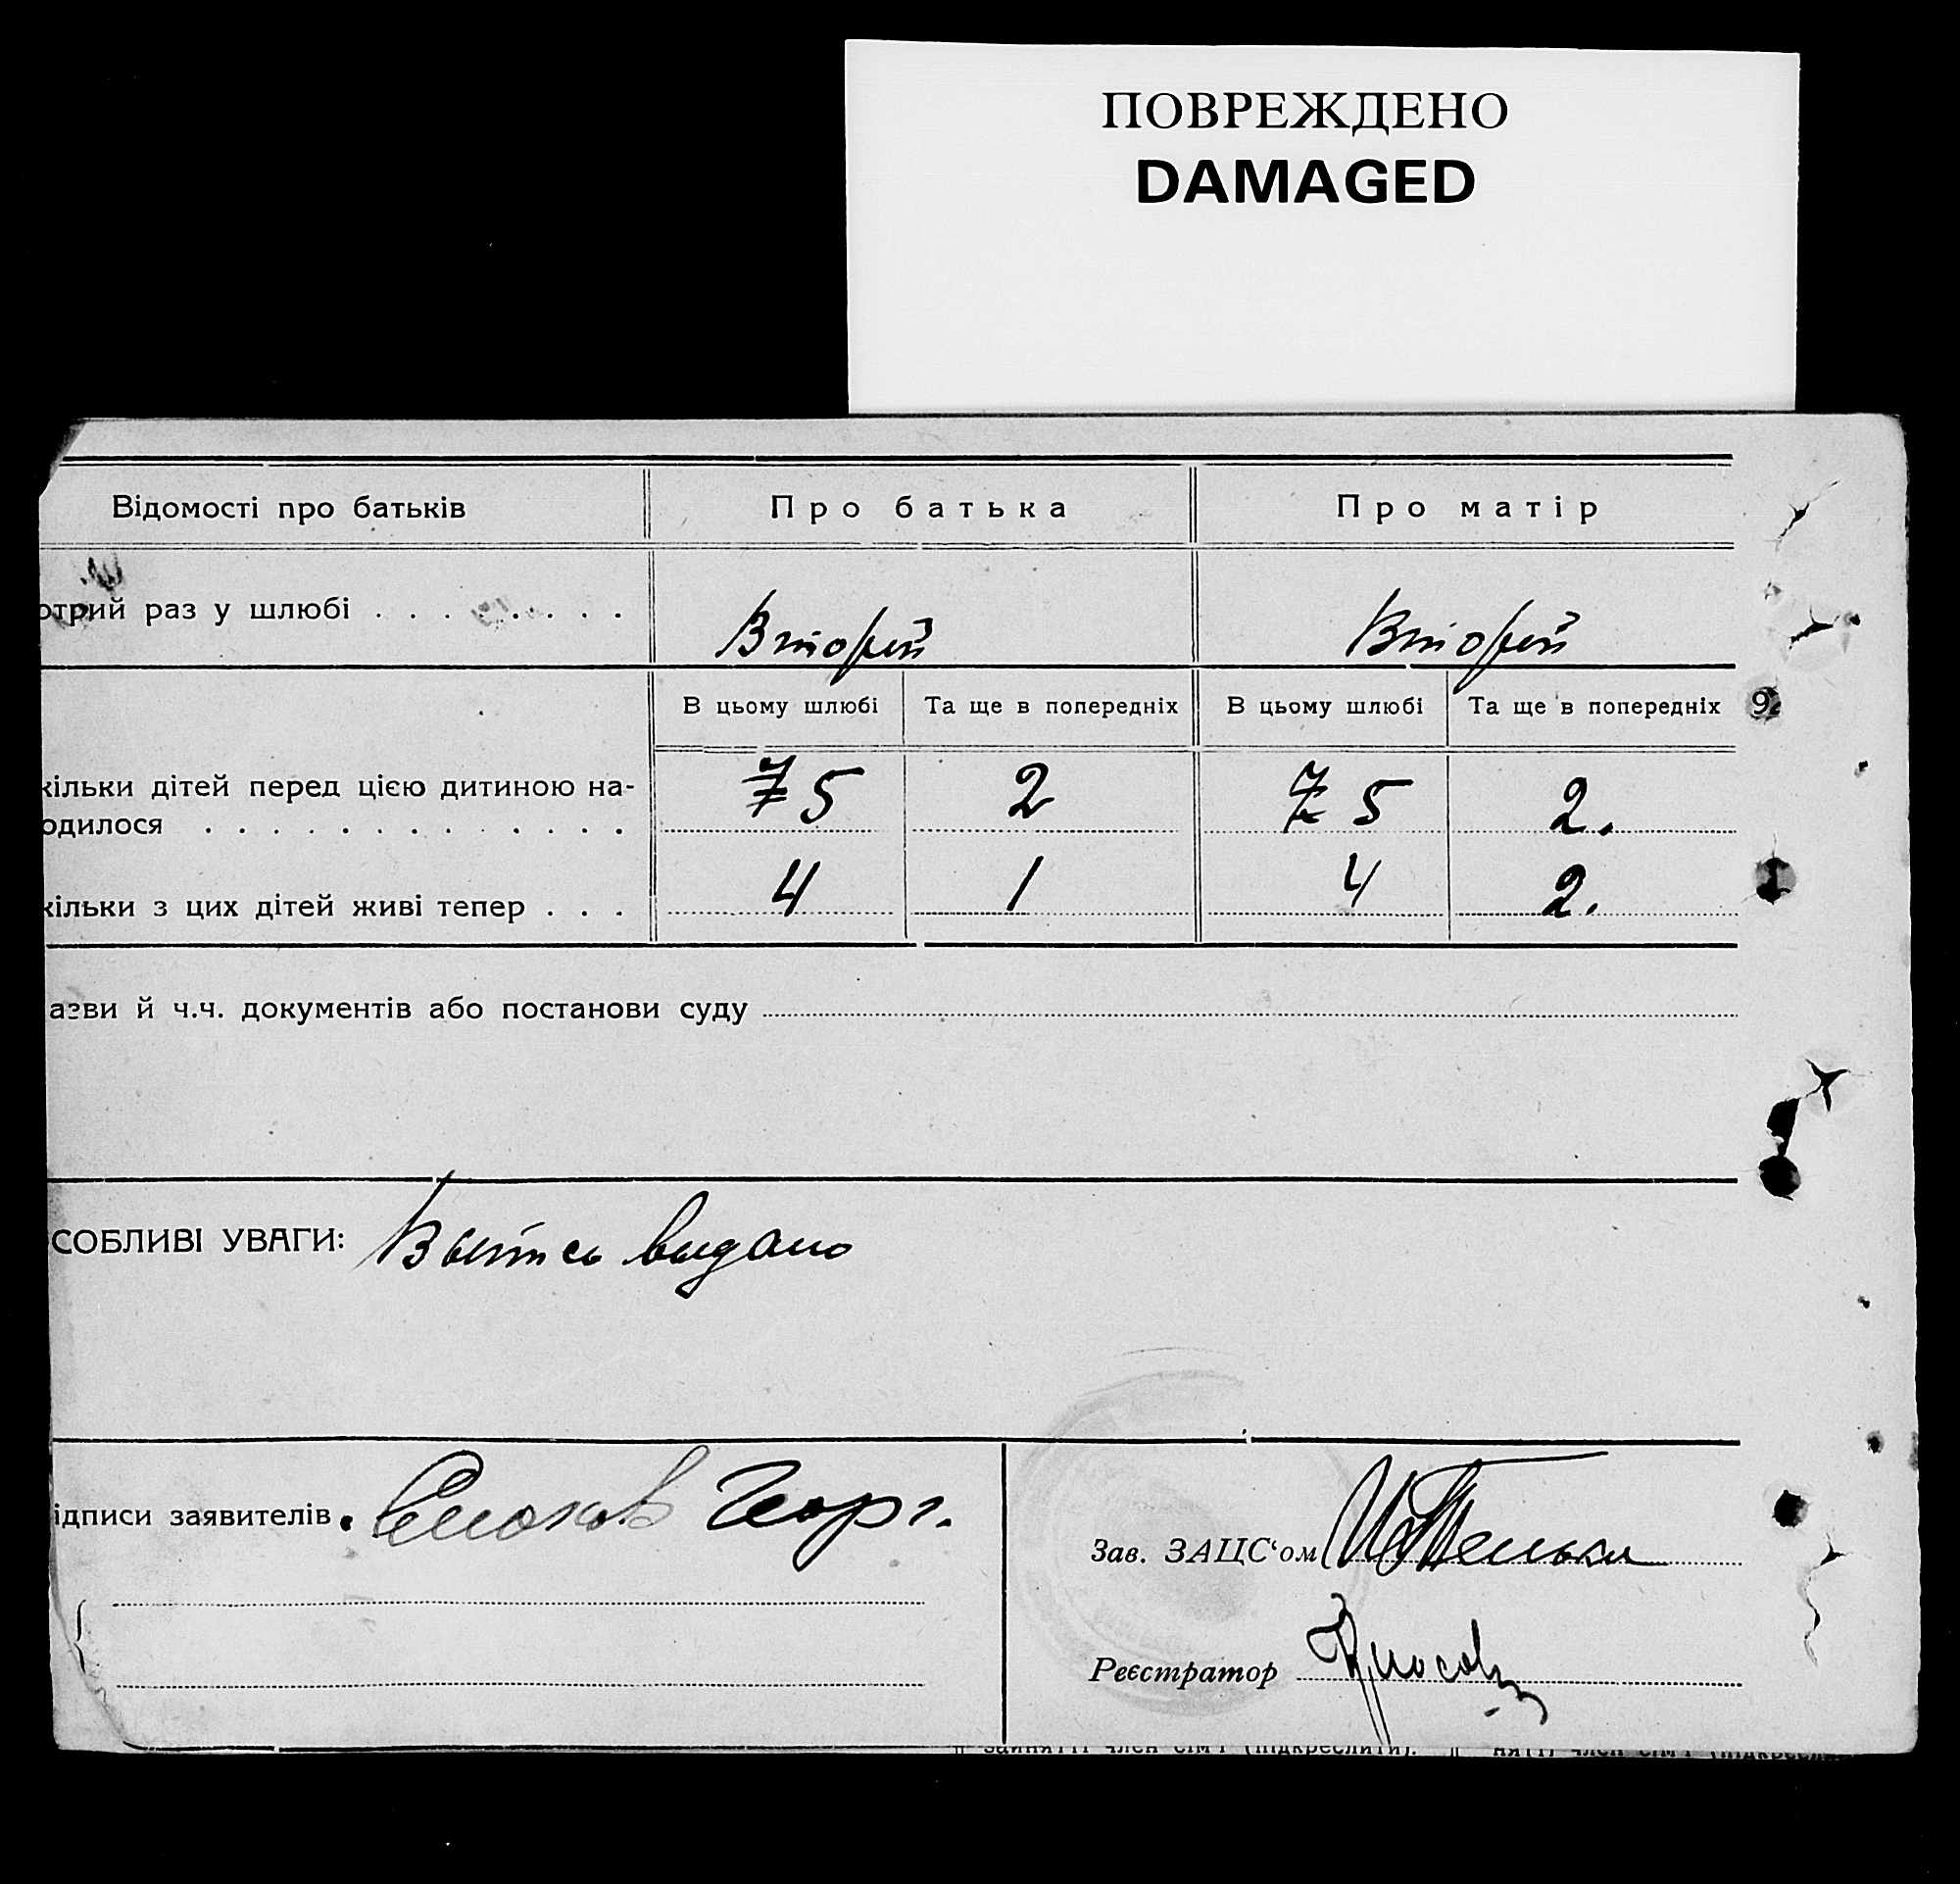 ПОВРЕЖДЕНО
DAMAGED
Відомості про батьків
Про батька
Про матір
отрий раз у шлюбі . . . . . . . .
Второй
Второй
В цьому шлюбі
Та ще в попередніх
В цьому шлюбі
Та ще в попередніх
9
кільки дітей перед цією дитиною на-
одилося . . . . . . . . . . . . .
7 5
2
7 5
2.
кільки з цих дітей живі тепер . . .
4
1
4
2.
азви й ч.ч. документів або постанови суду
СОБЛИВІ УВАГИ:
выдано
ідписи заявителів.
Георг.
Зав. ЗАЦС‘ом
Реєстратор
зайнятті член сім'ї (підкреслити).